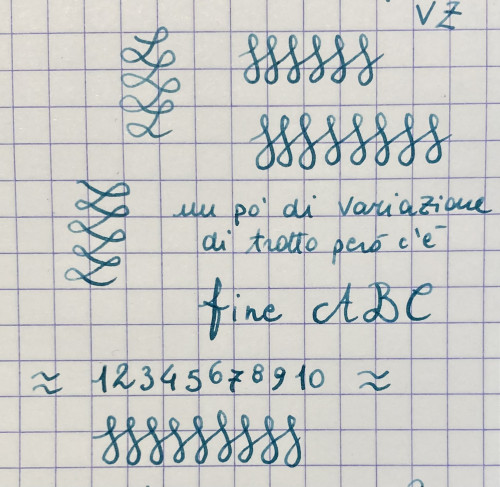 VZ
un po' di variazione
di trotto però c'è
fine ABC
≈ 12345678910 ≈